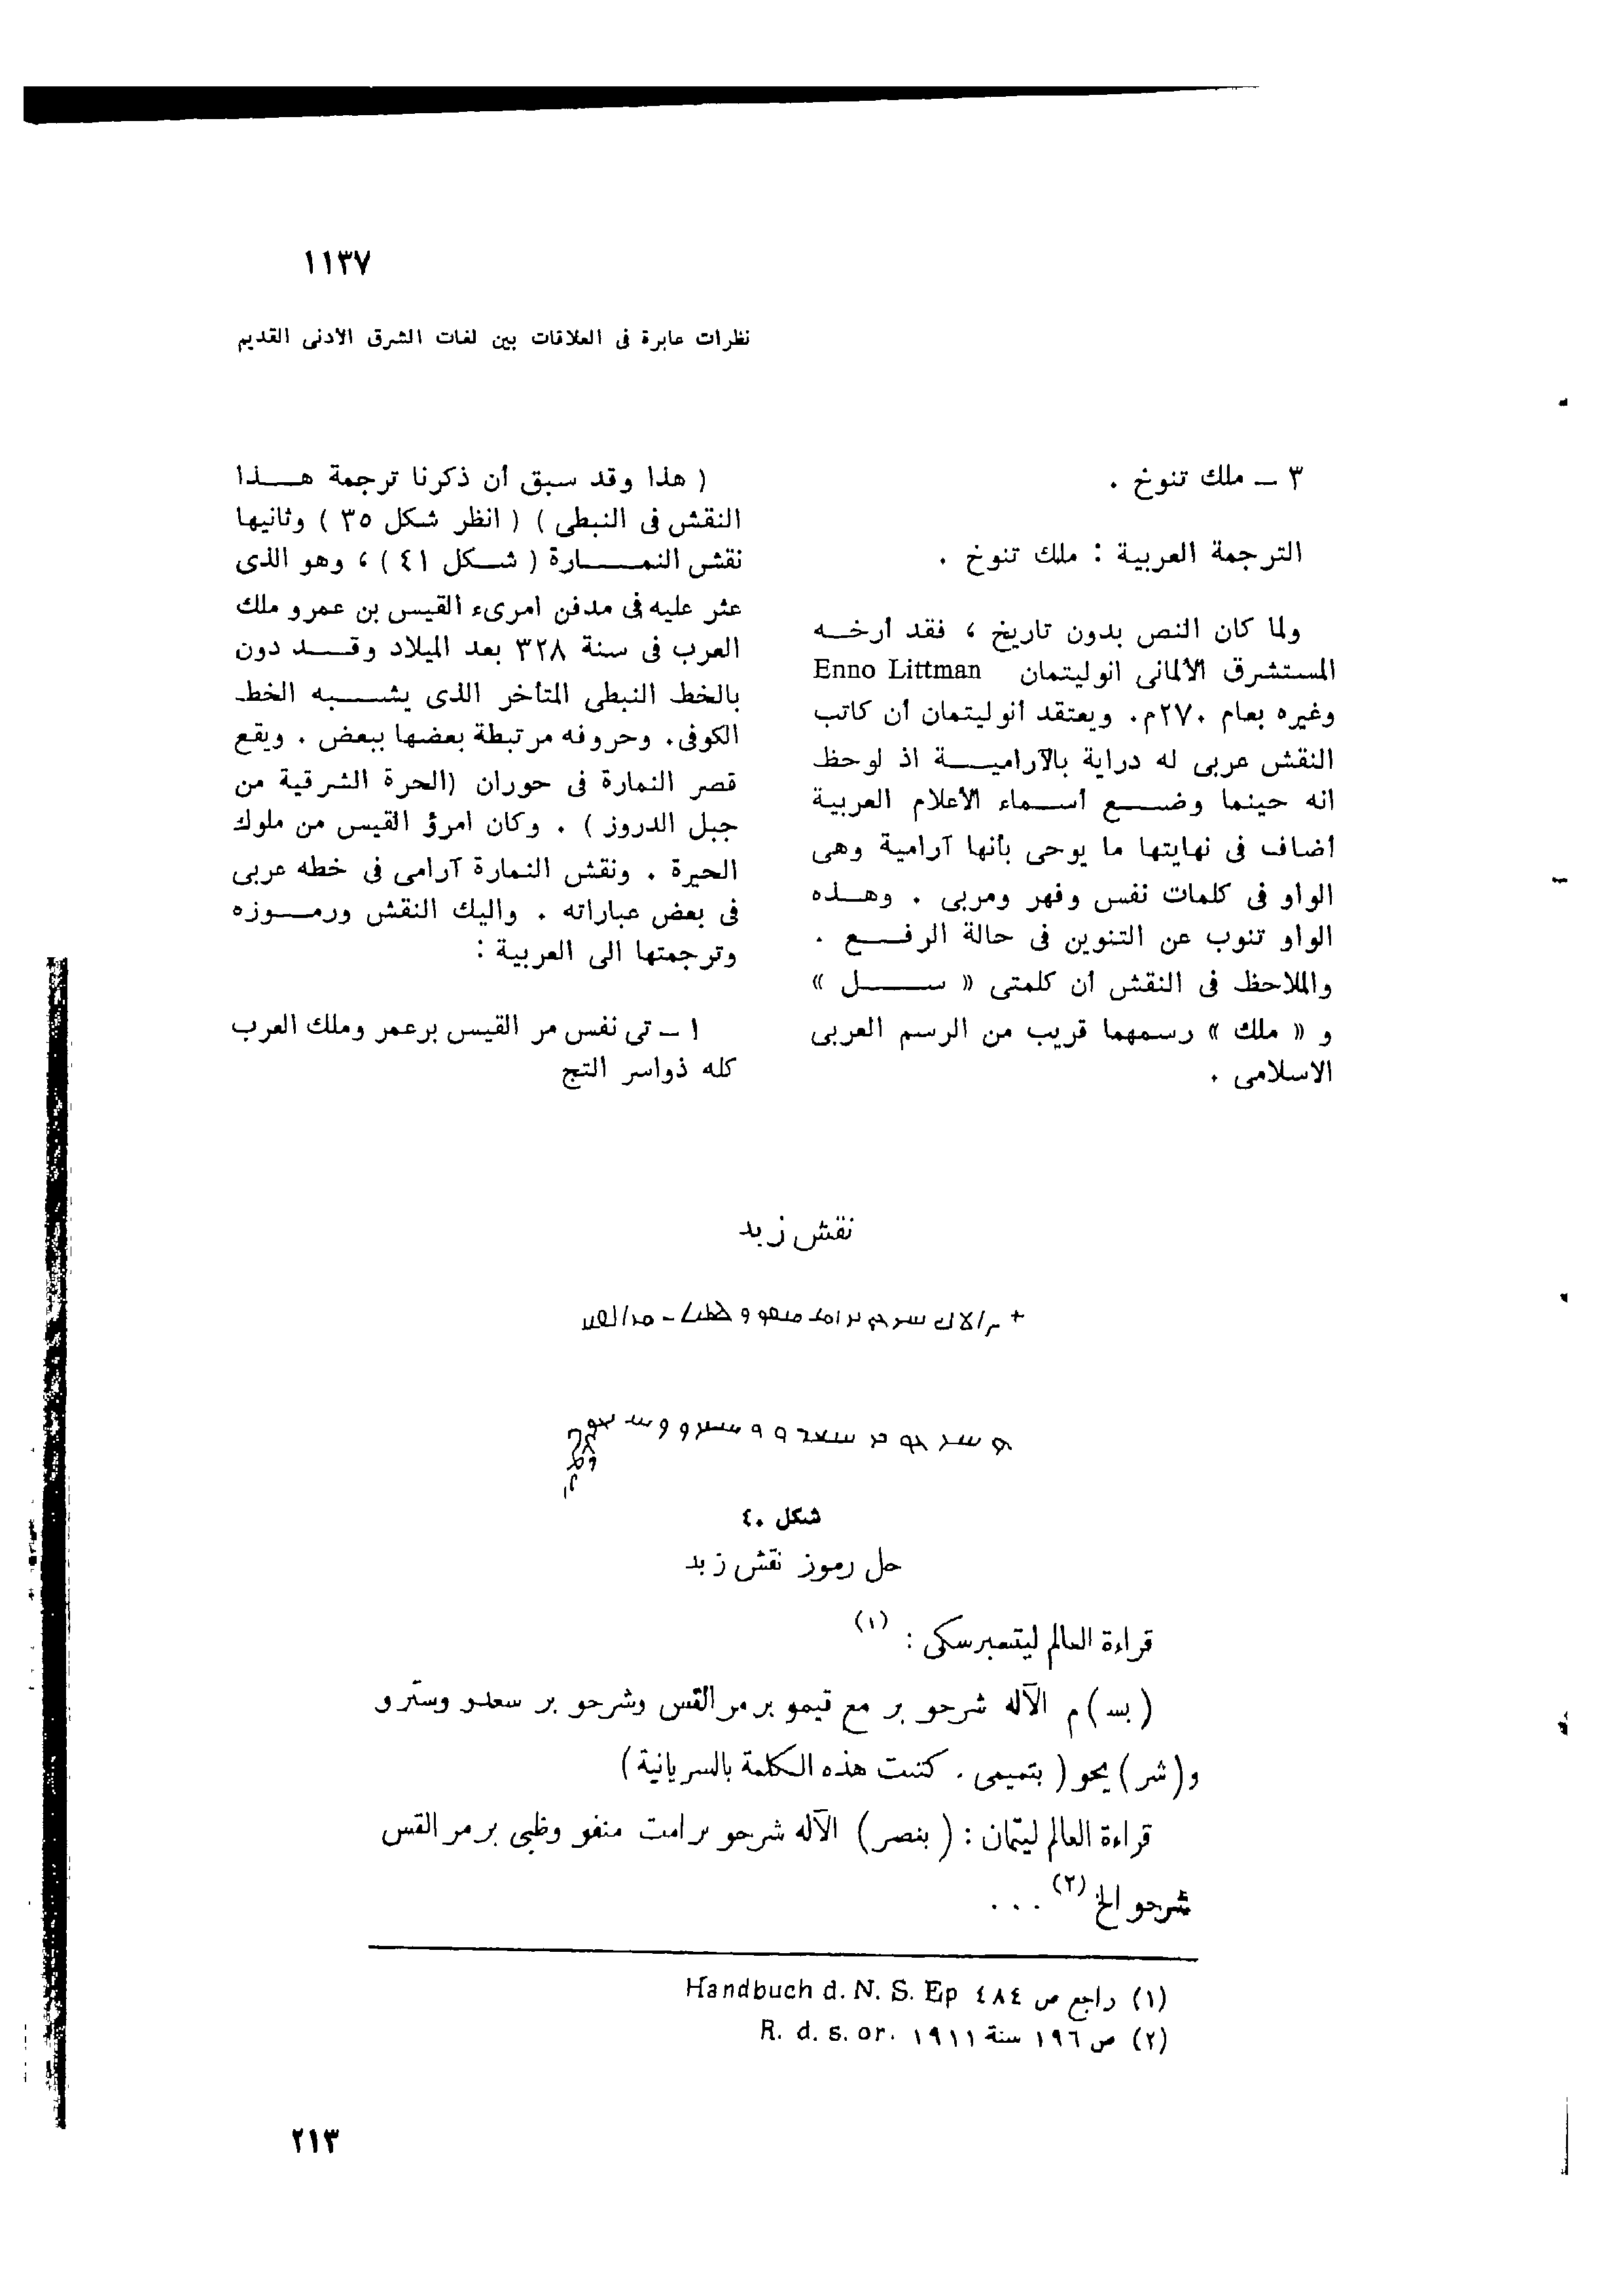 ١١٣٧
نظرات عابرة فى العلاقات بين لغات الشرق الأدنى القديم
٣ ـ ملك تنوخ .
الترجمة العربية : ملك تنوخ .
ولما كان النص بدون تاريخ ، فقد أرخه
المستشرق الألمانى انوليتمان Enno Littman
وغيره بعام ٢٧٠م. ويعتقد أنوليتمان أن كاتب
النقش عربى له دراية بالآرامية اذ لوحظ
انه حينما وضع أسماء الأعلام العربية
أضاف فى نهايتها ما يوحى بأنها آرامية وهى
الواو فى كلمات نفس وفهر ومربى . وهذه
الواو تنوب عن التنوين فى حالة الرفع .
والملاحظ فى النقش أن كلمتى « سل »
و « ملك » رسمهما قريب من الرسم العربى
الاسلامى .
( هذا وقد سبق أن ذكرنا ترجمة هذا
النقش فى النبطى ) ( انظر شكل ٣٥ ) وثانيها
نقش النمارة ( شكل ٤١ ) ، وهو الذى
عثر عليه فى مدفن امرىء القيس بن عمرو ملك
العرب فى سنة ٣٢٨ بعد الميلاد وقد دون
بالخط النبطى المتأخر الذى يشبه الخط
الكوفى. وحروفه مرتبطة بعضها ببعض . ويقع
قصر النمارة فى حوران (الحرة الشرقية من
جبل الدروز ) . وكان امرؤ القيس من ملوك
الحيرة . ونقش النمارة آرامى فى خطه عربى
فى بعض عباراته . واليك النقش ورموزه
وترجمتها الى العربية :
١ ـ تى نفس مر القيس برعمر وملك العرب
كله ذواسر التج
نقش زبد
شكل ٤٠
حل رموز نقش زبد
قراءة العالم ليتسبرسكى : (١)
(بسـ)م الآله شرحو بر مع قيمو بر مر القس وشرحو بر سعدو وسترو
و(شر)يحو ( بتميمى . كتبت هذه الكلمة بالسريانية)
قراءة العالم ليتمان : ( بنصر) الآله شرحو بر امت منفو وظبى بر مر القس
شرحو الخ (٢) ...
(١) راجع ص ٤٨٤ Handbuch d. N. S. Ep
(٢) ص ١٩٦ سنة ١٩١١ R. d. s. or.
٢١٣